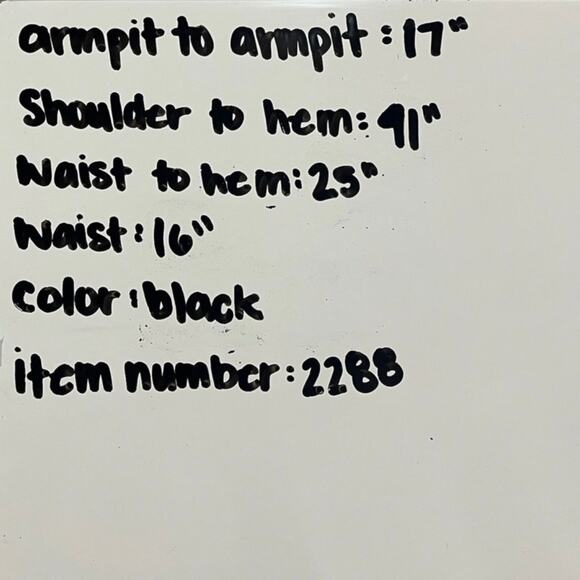 armpit to armpit: 17"
Shoulder to hem: 41"
Waist to hem: 25"
Waist: 16"
color: black
item number: 2288